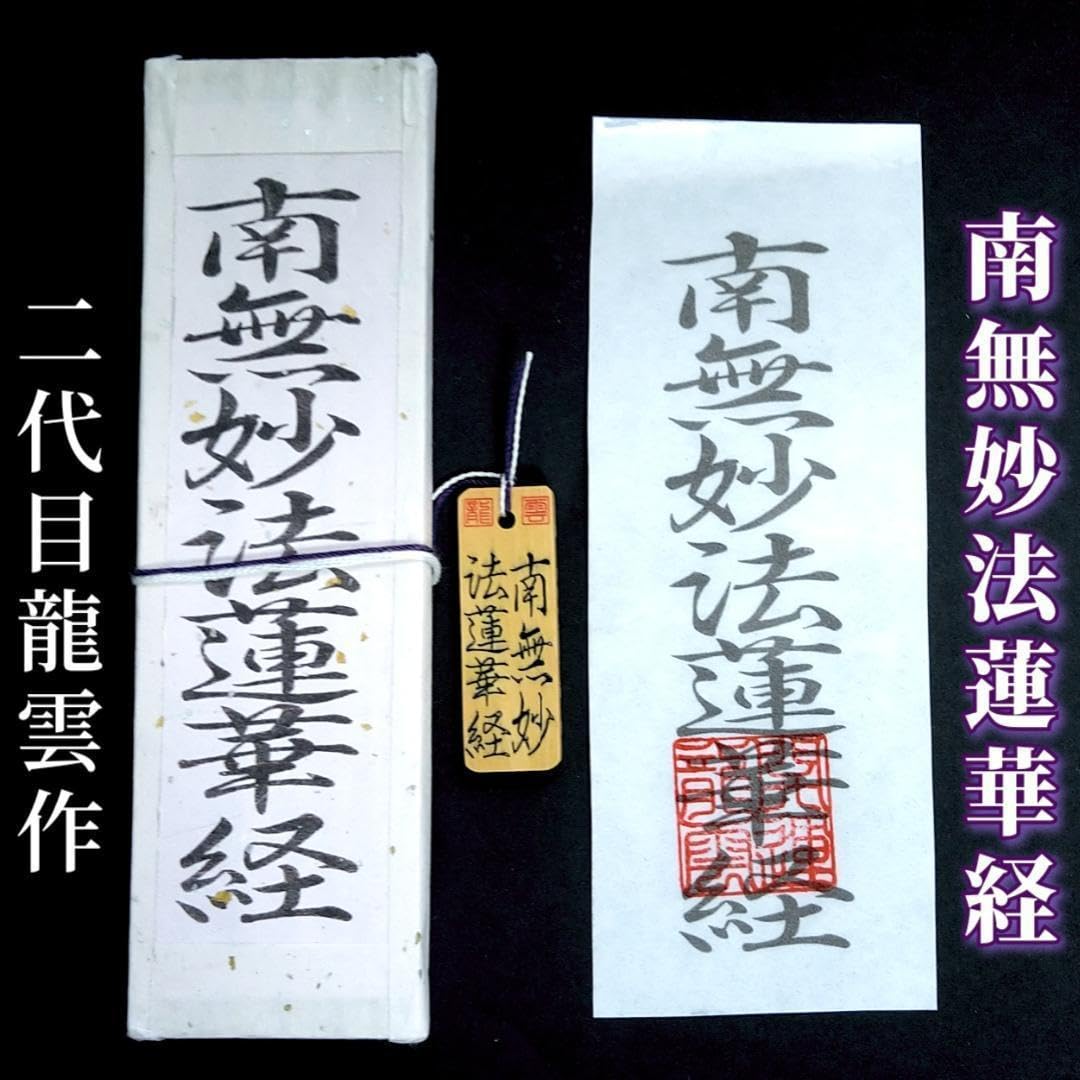 南無妙法蓮華経
南無妙法蓮華経
雲
龍
南無妙
法蓮華経
南無妙法蓮華経
二代目龍雲作